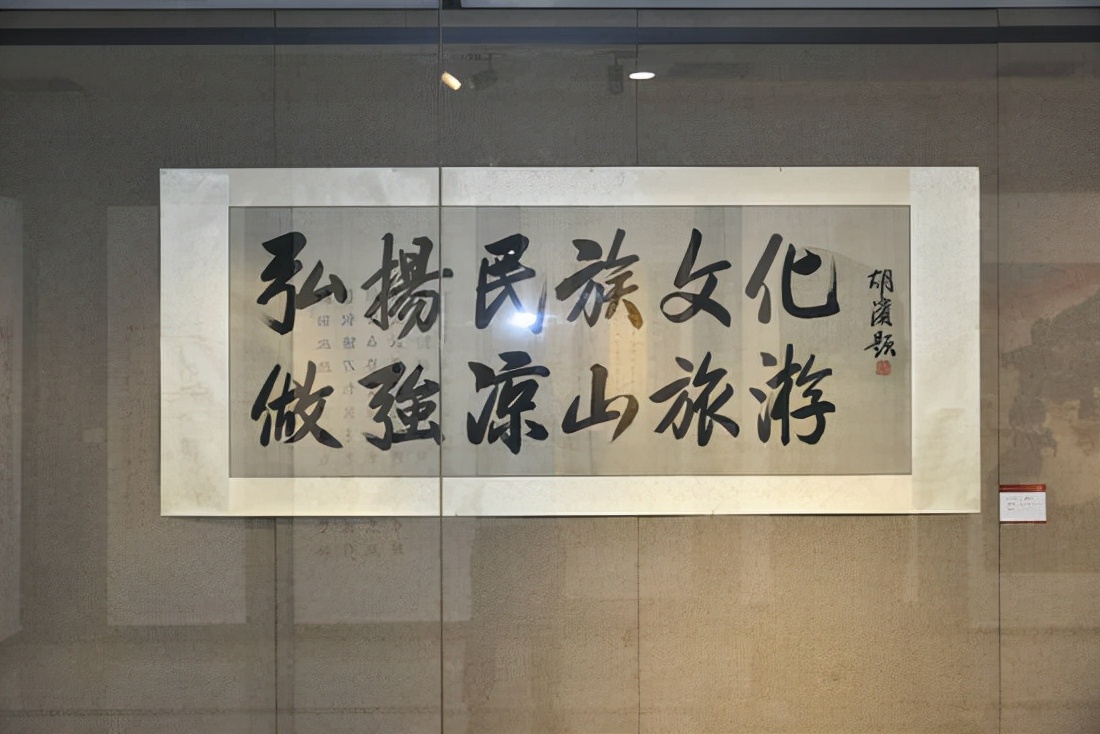 弘揚民族文化
做強凉山旅游
胡濱題